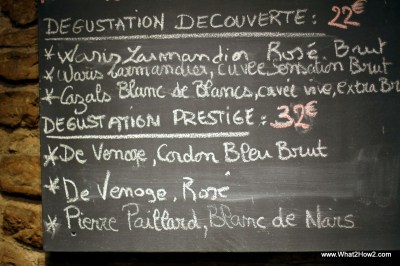 DEGUSTATION DECOUVERTE: 22€
* Waris Larmandier Rosé Brut
* Waris Larmandier, Cuvée Sensation Brut
* Cazals Blanc de Blancs, cuvée vive, extra Br
DEGUSTATION PRESTIGE: 32€
* De Venoge, Cordon Bleu Brut
* De Venoge, Rosé
* Pierre Paillard, Blanc de Noirs
www.What2How2.com